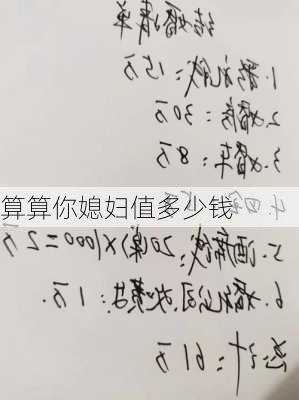 结婚清单
1.彩礼钱：15万
2.婚房：30万
3.婚车：8万
算算你媳妇值多少钱
4.四 万
5.酒席钱：20(桌)×1000=2万
6.婚礼公司 ：1万.
总计：61万